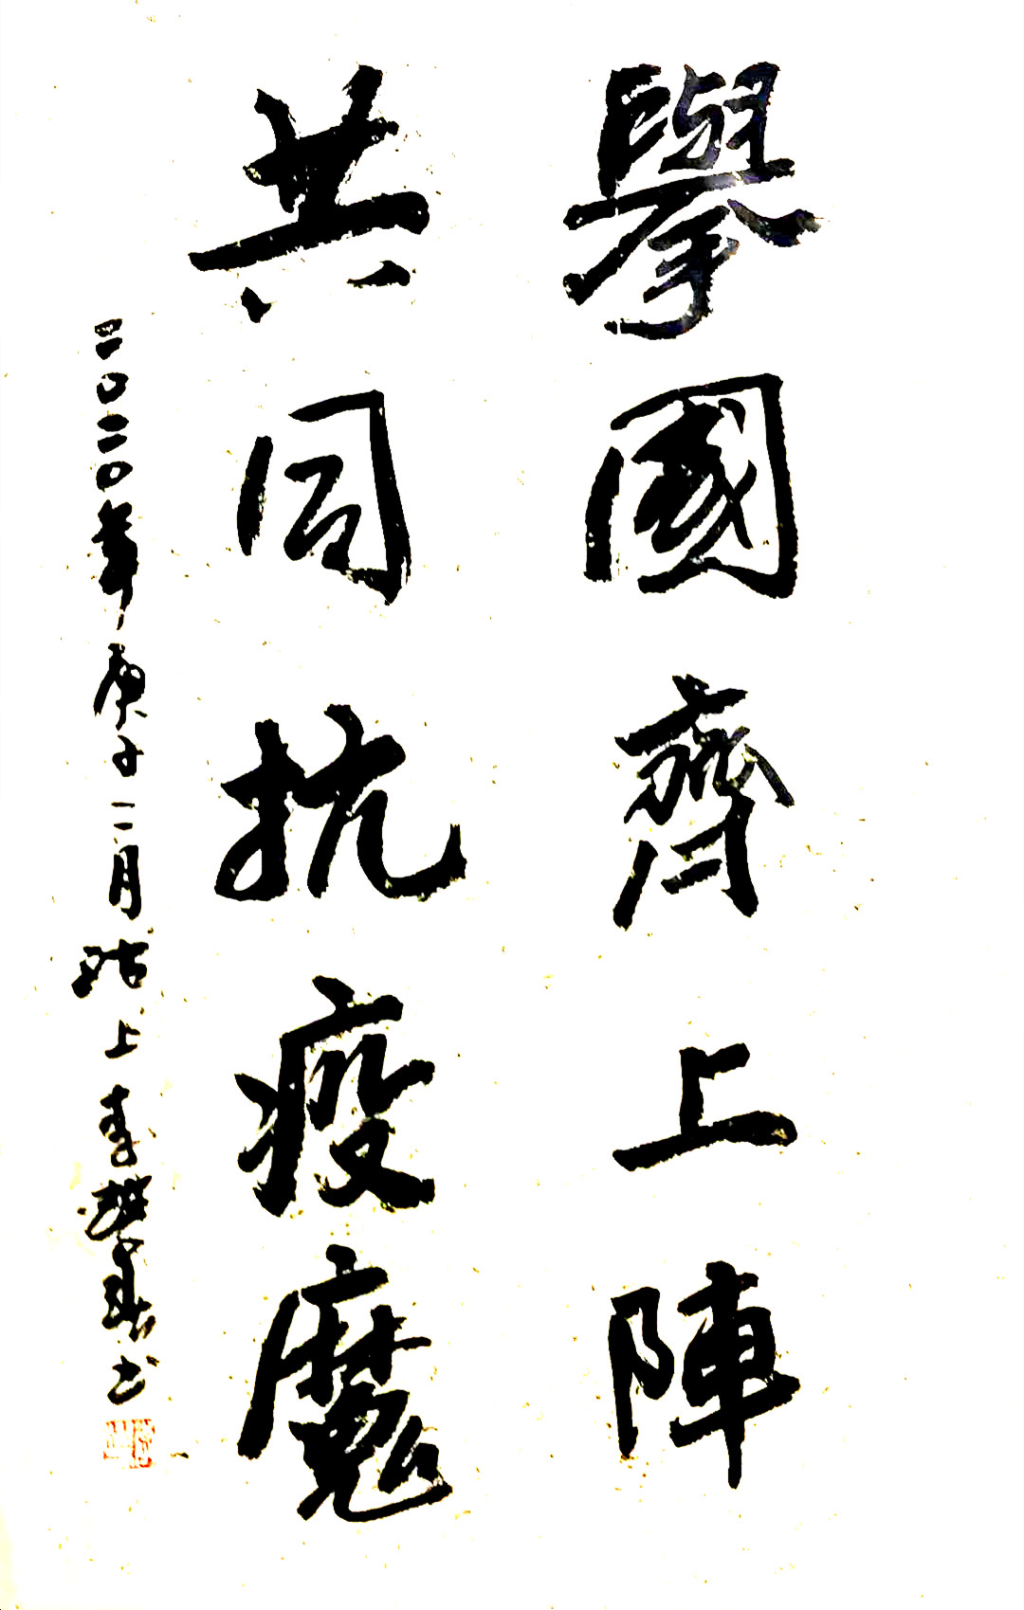 舉國齊上陣
共同抗疫魔
二〇二〇年庚子二月 上李 書